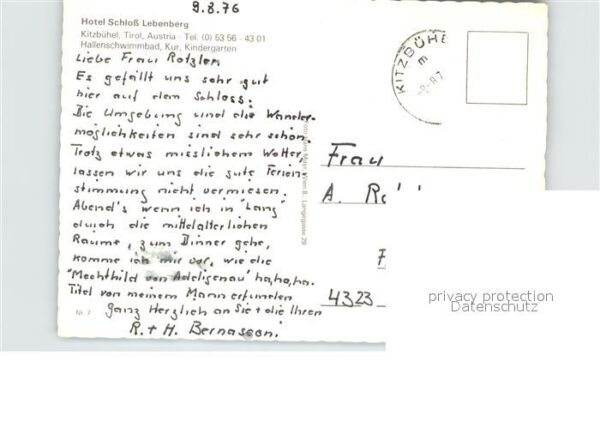 9.8.76
Hotel Schloß Lebenberg
Kitzbühel, Tirol, Austria · Tel. (0) 53 56 - 43 01
Hallenschwimmbad, Kur, Kindergarten
Liebe Frau Rotzler
Es gefällt uns sehr gut
hier auf dem Schloss.
Die Umgebung und die Wander-
möglichkeiten sind sehr schön.
Trotz etwas misslichem Wetter,
lassen wir uns die gute Ferien-
stimmung nicht vermiesen.
Abend's wenn ich in "Lang"
durch die mittelalterlichen
Räume, zum Dinner gehe,
komme ich mir vor, wie die
"Mechthild von Adeligenau" hahaha.
Titel von meinem Mann erfunden
Ganz Herzlich an Sie + die Ihren
R. + H. Bernasconi
Nr. 7
KITZBÜHE
Frau
A.
4323
privacy protection
Datenschutz